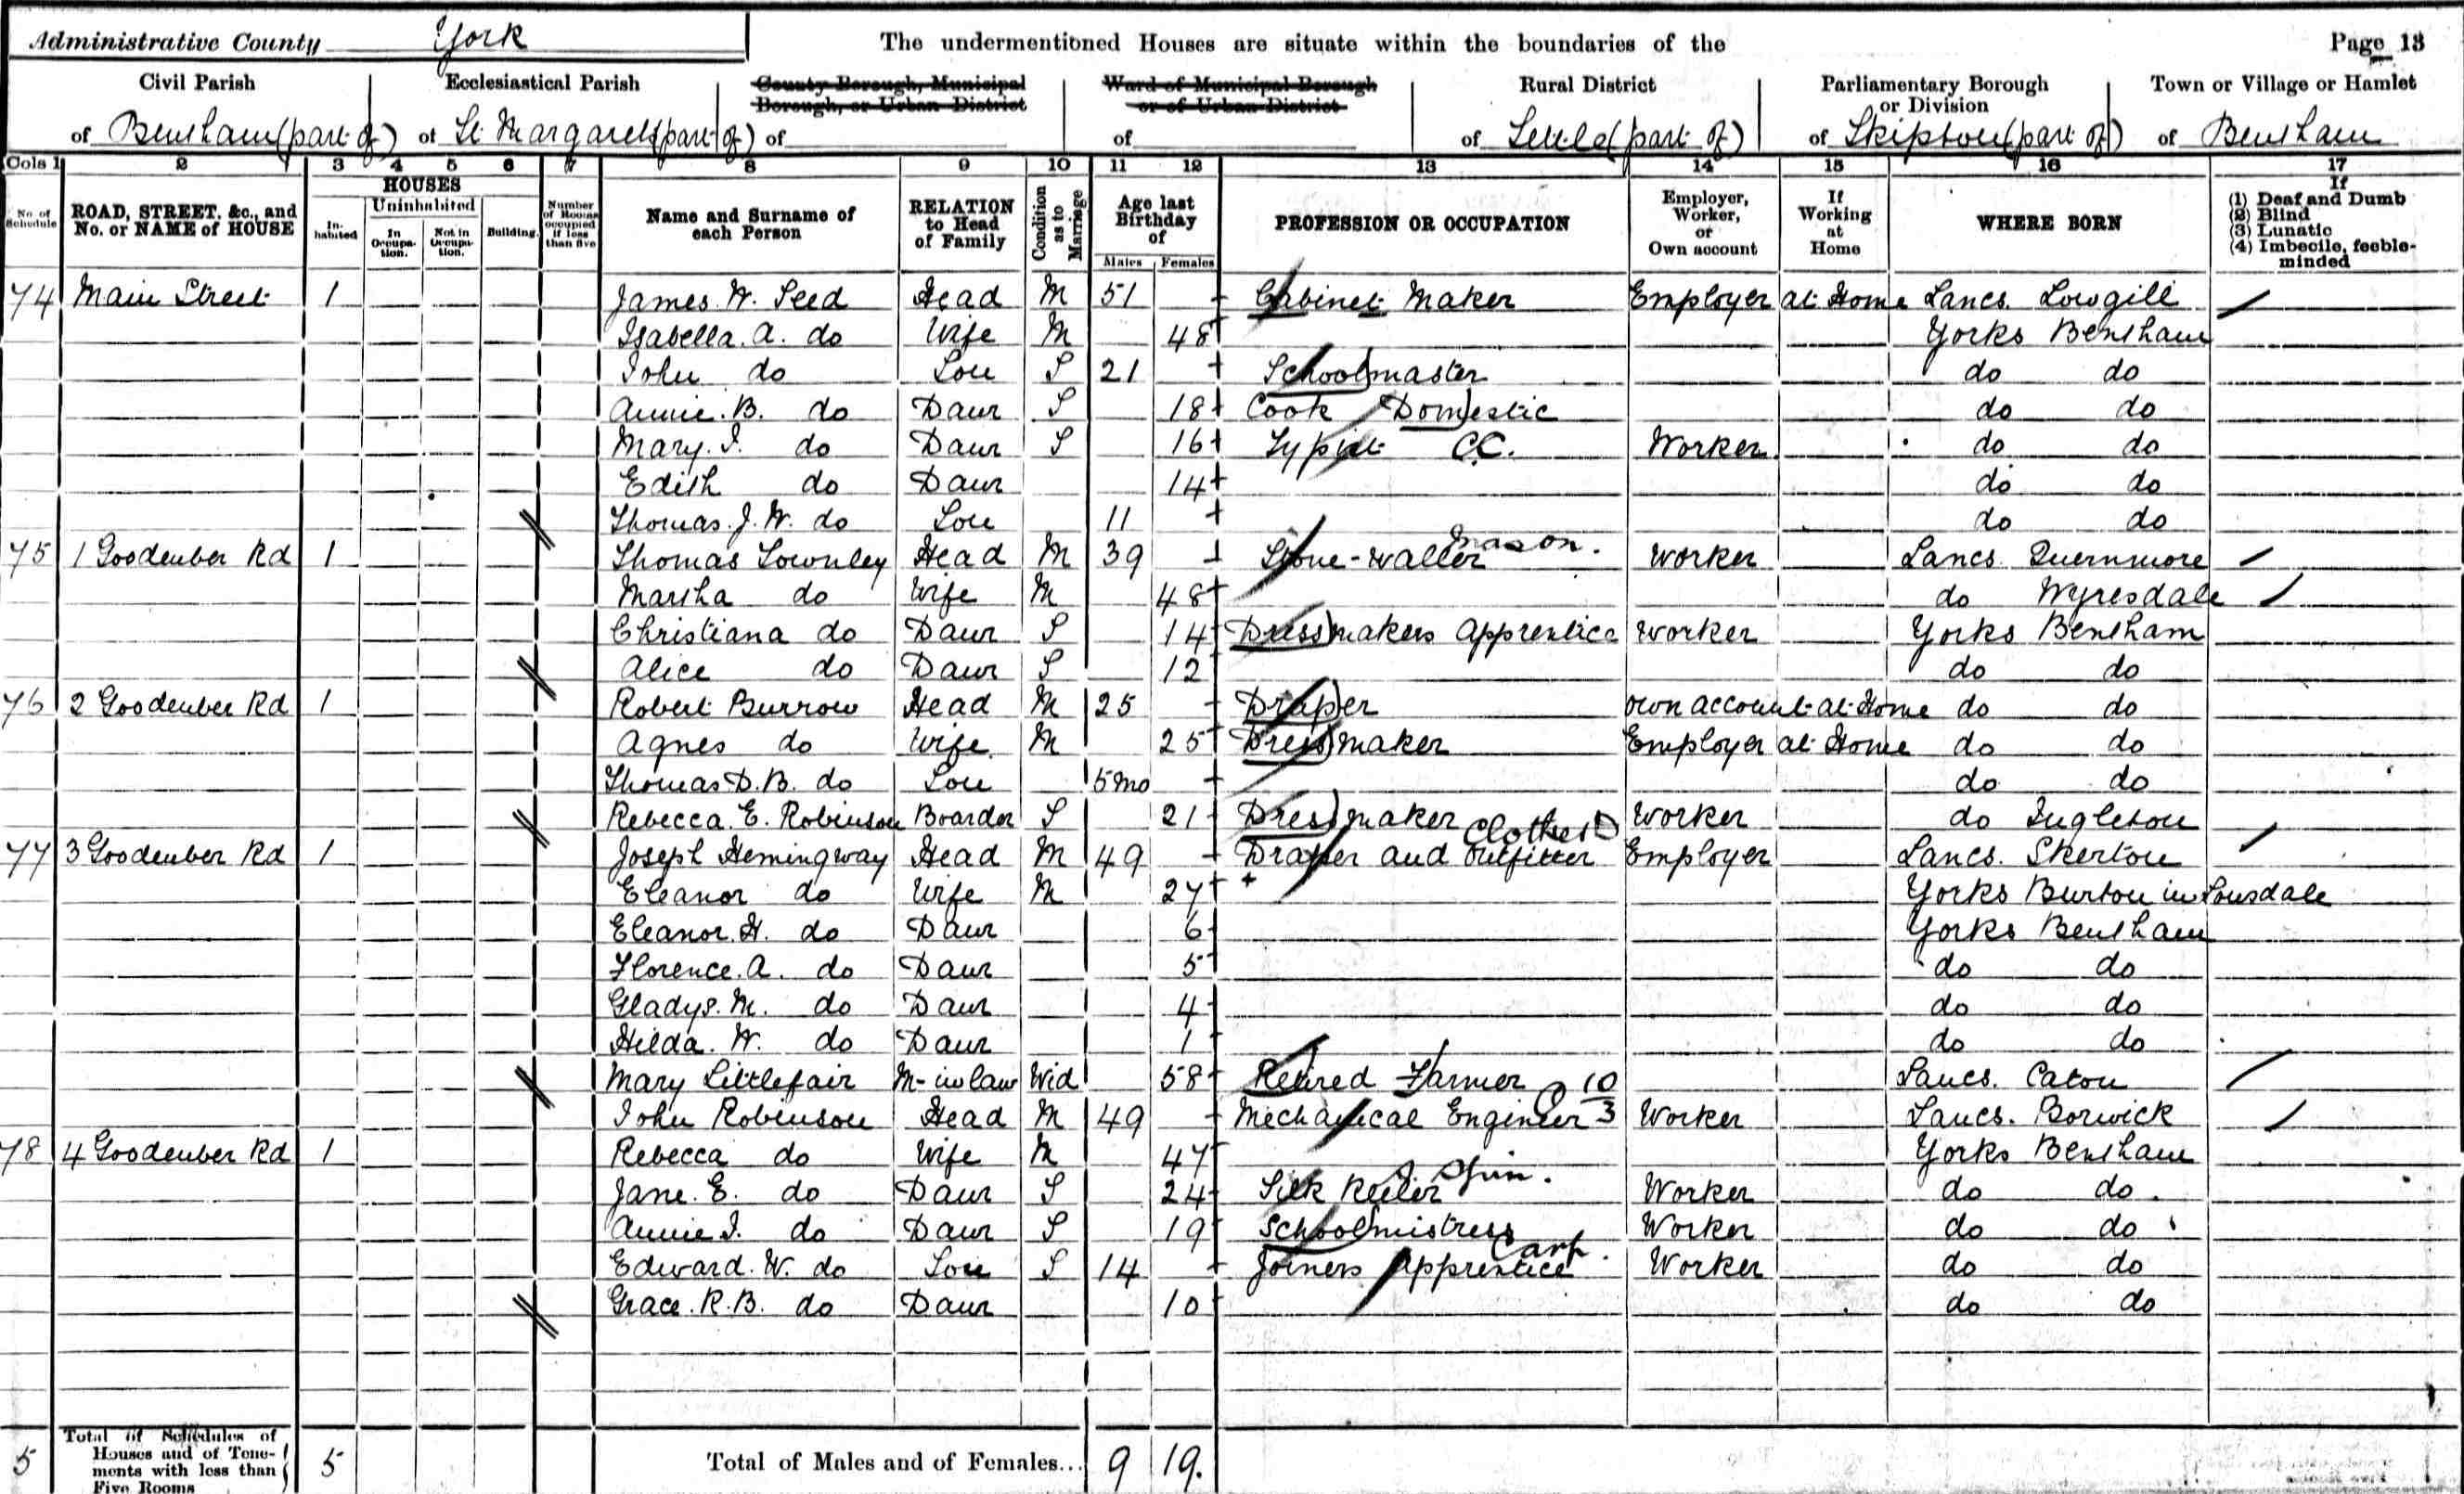 Administrative County York The undermentioned Houses are situate within the boundaries of the Page 13
Civil Parish Ecclesiastical Parish County Borough, Municipal Borough, or Urban District Ward of Municipal Borough or of Urban District Rural District Parliamentary Borough or Division Town or Village or Hamlet
of Bentham (part of) of St Margarets (part of) of of of Settle (part of) of Skipton (part of) of Bentham
Cols 1 2 3 4 5 6 7 8 9 10 11 12 13 14 15 16 17
No of Schedule ROAD, STREET, &c., and No. or NAME of HOUSE HOUSES Inhabited Uninhabited In Occupation. Not in Occupation. Building. Number of Rooms occupied if less than five Name and Surname of each Person RELATION to Head of Family Condition as to Marriage Age last Birthday of Males Females PROFESSION OR OCCUPATION Employer, Worker, or Own account If Working at Home WHERE BORN If (1) Deaf and Dumb (2) Blind (3) Lunatic (4) Imbecile, feeble-minded
74 Main Street 1 James W. Seed Head M 51 Cabinet Maker Employer at Home Lancs. Lowgill
Isabella. A. do Wife M 48 Yorks Bentham
John do Son S 21 Schoolmaster do do
Annie. B. do Daur S 18 Cook Domestic do do
Mary. I. do Daur S 16 Typist CC. Worker do do
Edith do Daur 14 do do
Thomas. J. W. do Son 11 do do
75 1 Goodenber Rd 1 Thomas Townley Head M 39 Stone-waller mason. Worker Lancs. Quernmore
Martha do Wife M 48 do Wyresdale
Christiana do Daur S 14 Dressmakers Apprentice Worker Yorks Bentham
Alice do Daur S 12 do do
76 2 Goodenber Rd 1 Robert Burrow Head M 25 Draper own account at Home do do
Agnes do Wife M 25 Dressmaker Employer at Home do do
Thomas D. B. do Son 5mo do do
Rebecca. E. Robinson Boarder S 21 Dressmaker Worker do Ingleton
77 3 Goodenber Rd 1 Joseph Hemingway Head M 49 Draper and Outfitter Clothes D Employer Lancs. Skerton
Eleanor do Wife M 27 Yorks Burton in Lonsdale
Eleanor. H. do Daur 6 Yorks Bentham
Florence. A. do Daur 5 do do
Gladys. M. do Daur 4 do do
Hilda. W. do Daur 1 do do
Mary Littlefair M-in law Wid 58 Retired Farmer Lancs. Caton
John Robinson Head M 49 Mechanical Engineer 10/3 Worker Lancs. Borwick
78 4 Goodenber Rd 1 Rebecca do Wife M 47 Yorks Bentham
Jane. E. do Daur S 24 Silk Reeler S. Spin. Worker do do
Annie I. do Daur S 19 Schoolmistress Worker do do
Edward. W. do Son S 14 Joiners Apprentice Carp. Worker do do
Grace. R. B. do Daur 10 do do
5 Total of Schedules of Houses and of Tenements with less than Five Rooms 5 Total of Males and of Females... 9 19.